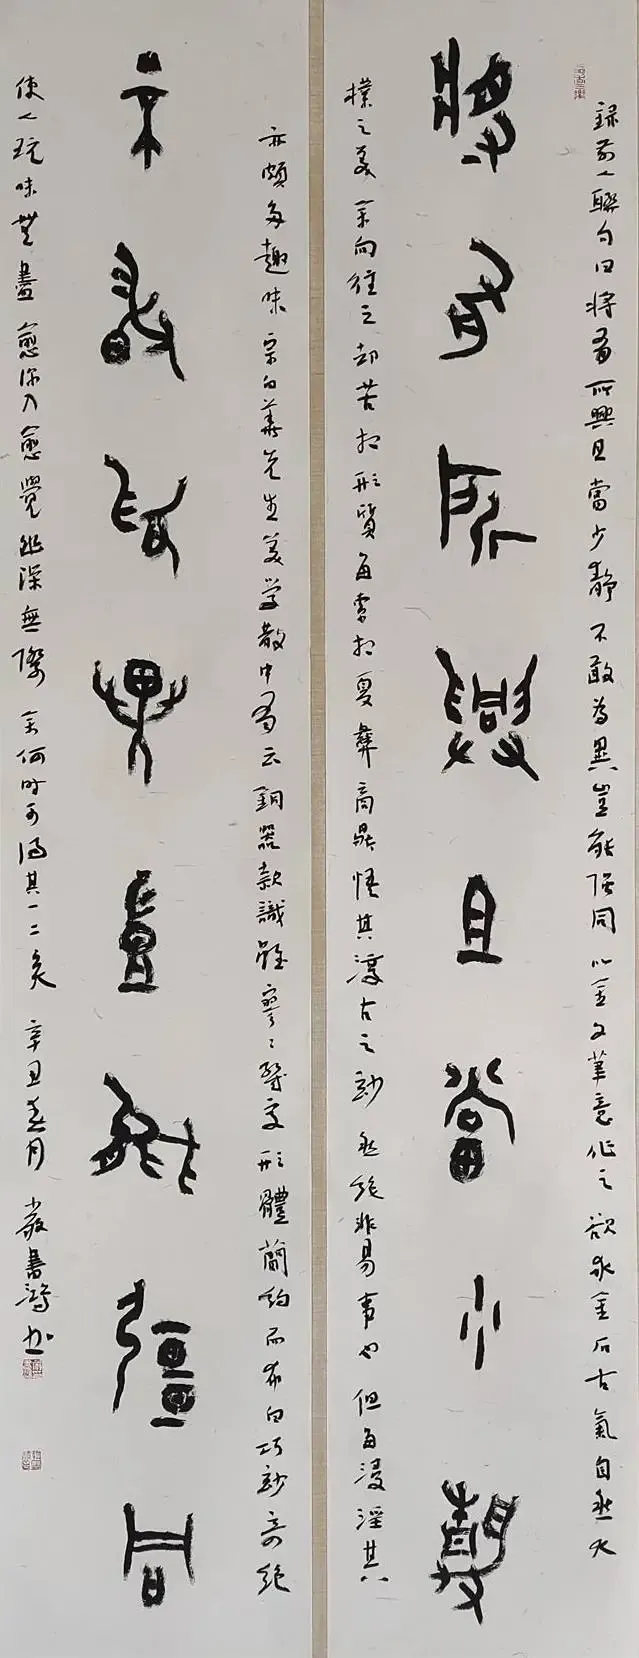 録前人聯句曰將有所興且當少靜不敢為異豈能强同以金文筆意作之欲求金石古氣自然大
將有所興且當少靜
樸之美余向往之却苦於形質每索於夏彝商鼎悟其渾古之妙然絶非易事也但每浸淫其
亦頗多趣味宗白華先生美学散中有云銅器款識雖寥寥幾字形體簡約而布白巧妙奇絶
不敢為異豈能彊同
使人玩味無盡愈深入愈覺幽深無際余何時可得其一二矣 辛丑春月 書书